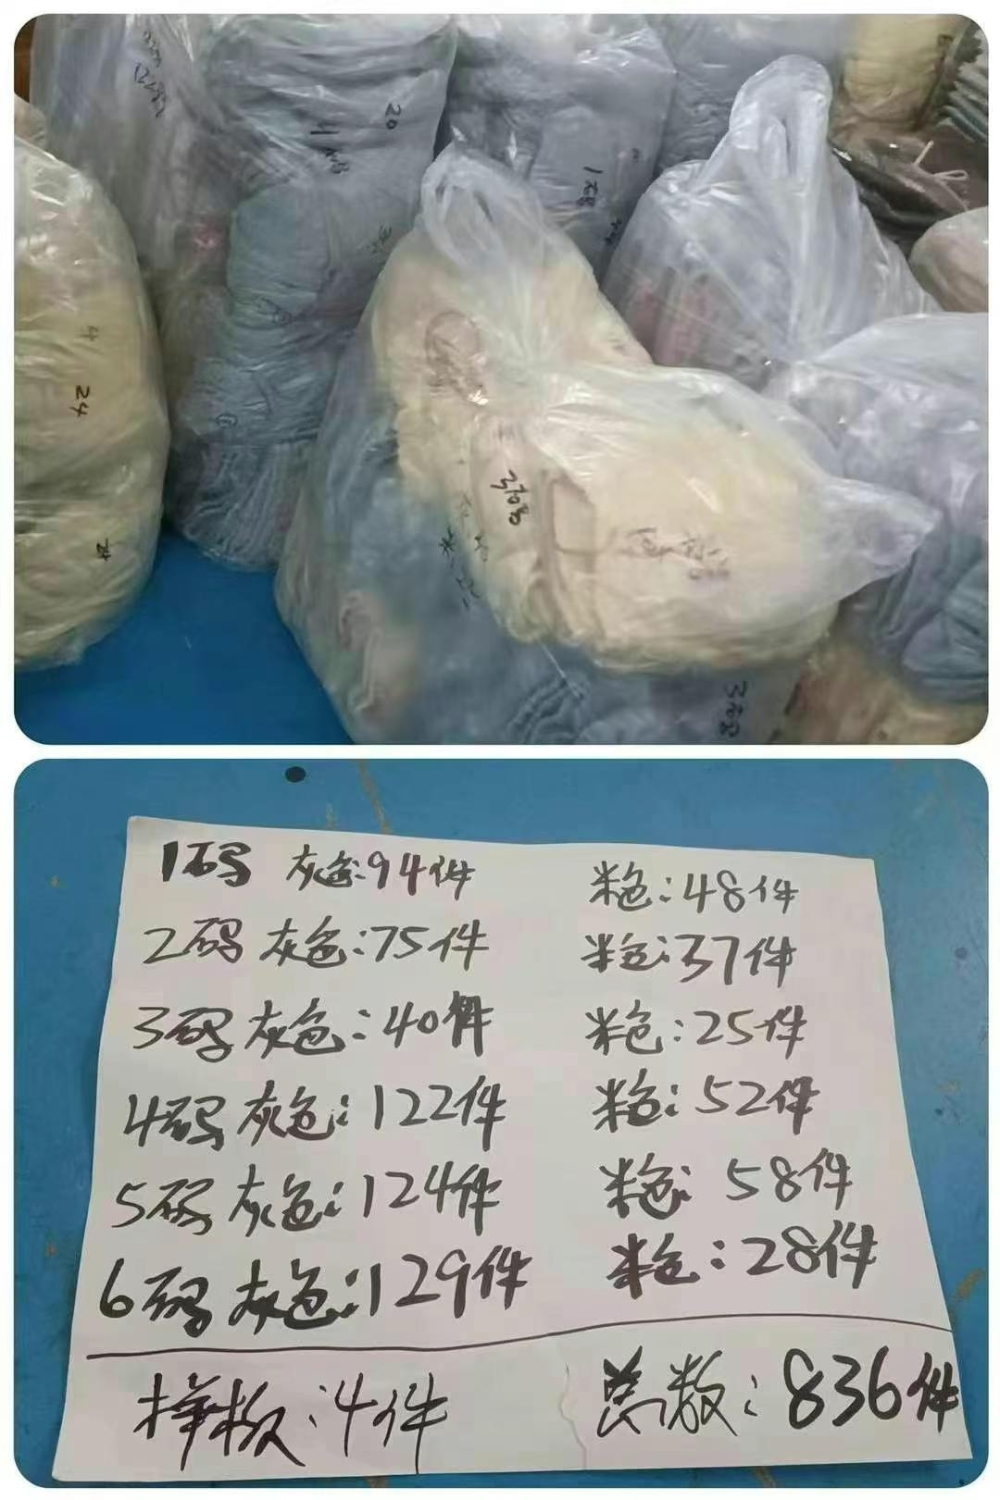 20
1码
1码
4
24
3码
3码
1码 灰色:94件 米色:48件
2码 灰色:75件 米色:37件
3码 灰色:40件 米色:25件
4码 灰色:122件 米色:52件
5码 灰色:124件 米色:58件
6码 灰色:129件 米色:28件
样板:4件 总数:836件